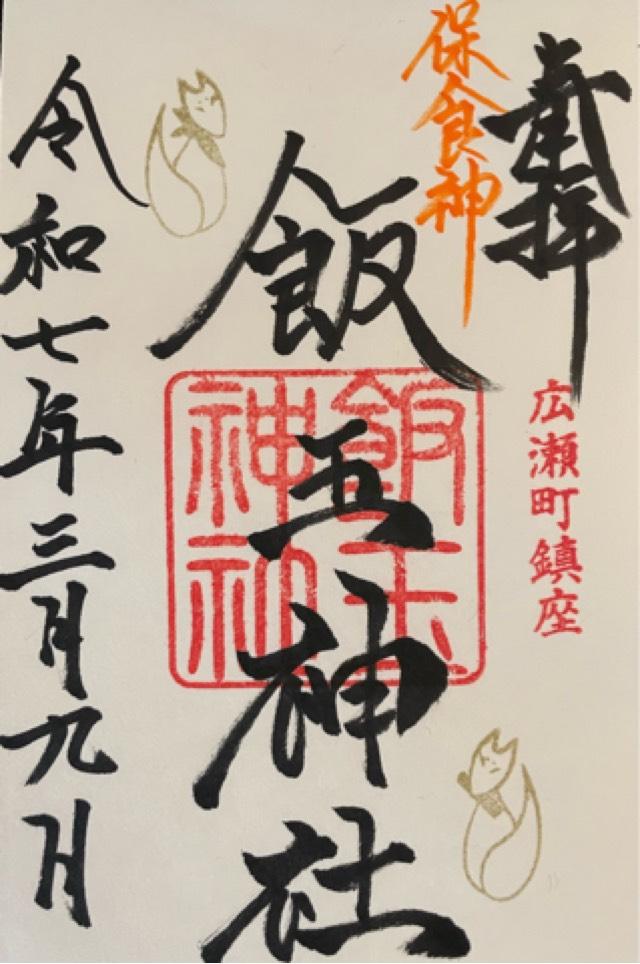 奉拝
保食神
広瀬町鎮座
飯玉神社
飯玉
神社
令和七年三月九日